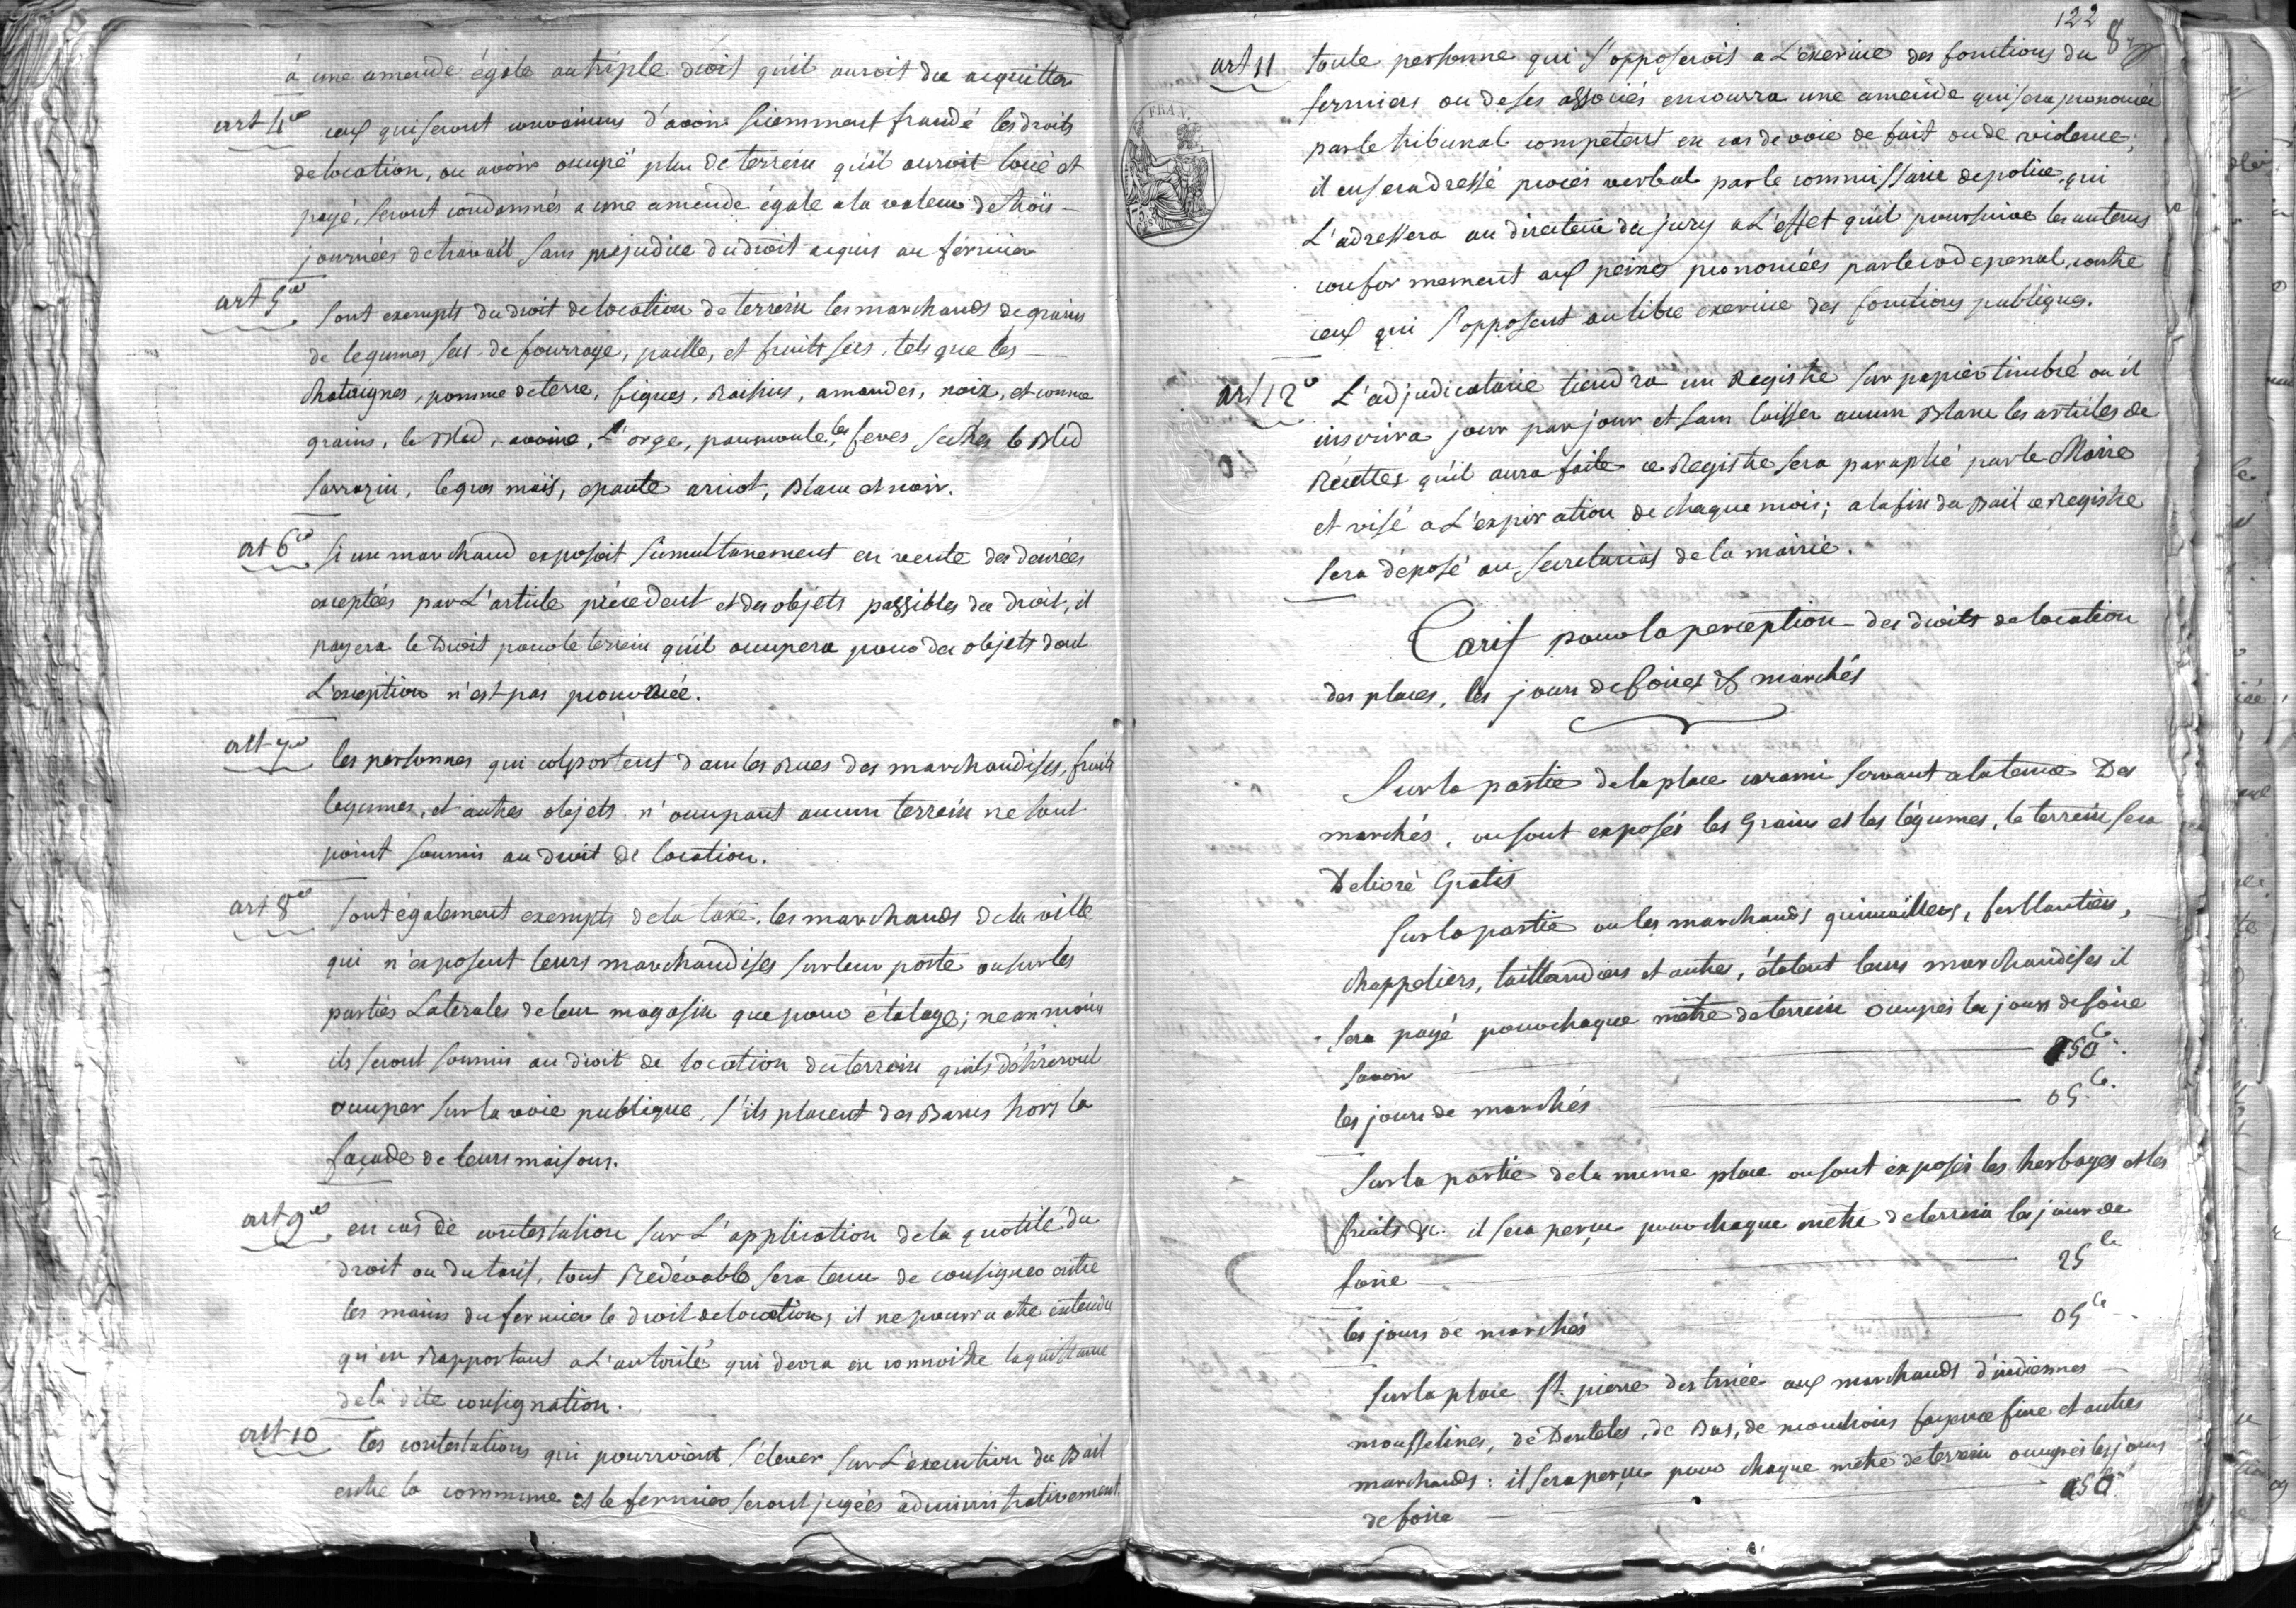 à une amende égale au triple droit qu'il auroit du acquitter
art 4e ceux qui seront convaincus d'avoir sciemment fraudé les droits
de location, ou avoir occupé plus de terrein qu'il auroit loué et
payé, seront condamnés a une amende égale a la valeur de trois
journées de travail sans prejudice du droit acquis au férmier
art 5e sont exempts du droit de location de terrein les marchands de grains
de legumes secs de fourrage, paille, et fruits secs, tels que les
Chataignes, pomme de terre, figues, Raisins, amandes, noix, et comme
grains, le Bled, avoine, L'orge, paumoule, les feves seches le Bled
sarrazin, le gros maïs, epaute aricot, Blanc et noir.
art 6e si un marchand exposoit simultanement en vente des denrées
exceptées par L'article précédent et des objets passibles du droit, il
payera le Droit pour le terrein qu'il occupera pour des objets dont
L'exception n'est pas prononcée.
art 7e les personnes qui colportent dans les Rues des marchandises, fruits
legumes, et autres objets n'occupant aucun terrein ne sont
point soumis au droit de location.
art 8e sont également exempts de la taxe, les marchands de la ville
qui n'exposent leurs marchandises sur leur porte ou sur les
parties Laterales de leur magasin que pour étalage; neanmoins
ils seront soumis au droit de location du terrein qu'ils désireront
occuper sur la voie publique, s'ils placent des Bancs hors la
façade de leurs maisons.
art 9e en cas de contestation sur L'application de la quotité du
droit ou du tarif, tout Redévable sera tenu de consigner entre
les mains du fermier le droit de location; il ne pourra etre entendu
qu'en Rapportant a L'autorité qui devra en connoitre la quittance
de la dite consignation.
art 10 les contestations qui pourroient s'élever sur L'execution du Bail
entre la commune et le fermier seront jugées administrativement.
122
8
art 11 toute personne qui s'opposeroit a L'exercice des fonctions du
fermiers ou de ses associés encourra une amende qui sera prononcée
par le tribunal competent en cas de voie de fait ou de violence;
il en sera dressé procès verbal par le commissaire de police, qui
L'adressera au directeur du jury a L'effet qu'il poursuive les auteurs
conformement aux peines prononcées par le code penal, contre
ceux qui s'opposent au libre exercice des fonctions publiques.
FRAN
art 12e L'adjudicataire tiendra un Registre sur papier timbré ou il
inscrira jour par jour et sans laisser aucun Blanc les articles de
Recettes qu'il aura faite ce Registre sera paraphé par le Maire
et visé a L'expiration de chaque mois; a la fin du Bail ce Registre
sera déposé au secretariat de la mairie.
Tarif pour la perception des droits de location
des places, les jours de foires & marchés
Sur la partie de la place carami servant a la tenue Des
marchés, ou sont exposés les Grains et les légumes, le terrein sera
Delivré Gratis
Sur la partie ou les marchands quincailliers, ferblantiers,
chappeliers, taillandiers et autres, étalent leurs marchandises il
sera payé pour chaque mètre de terrein occupés les jours de foire
savoir 50 ces.
les jours de marchés 05 ces.
Sur la partie de la meme place ou sont exposés les herbages et les
fruits &c. il sera perçu pour chaque metre de terrein les jours de
foire 25 ces
les jours de marchés 05 ces
Sur la place St. pierre destinée aux marchands d'indiennes
mousselines, de Denteles, de Bas, de mouchoirs fayence fine et autres
marchands: il sera perçu pour chaque metre de terrein occupés les jours
de foire 50 ces